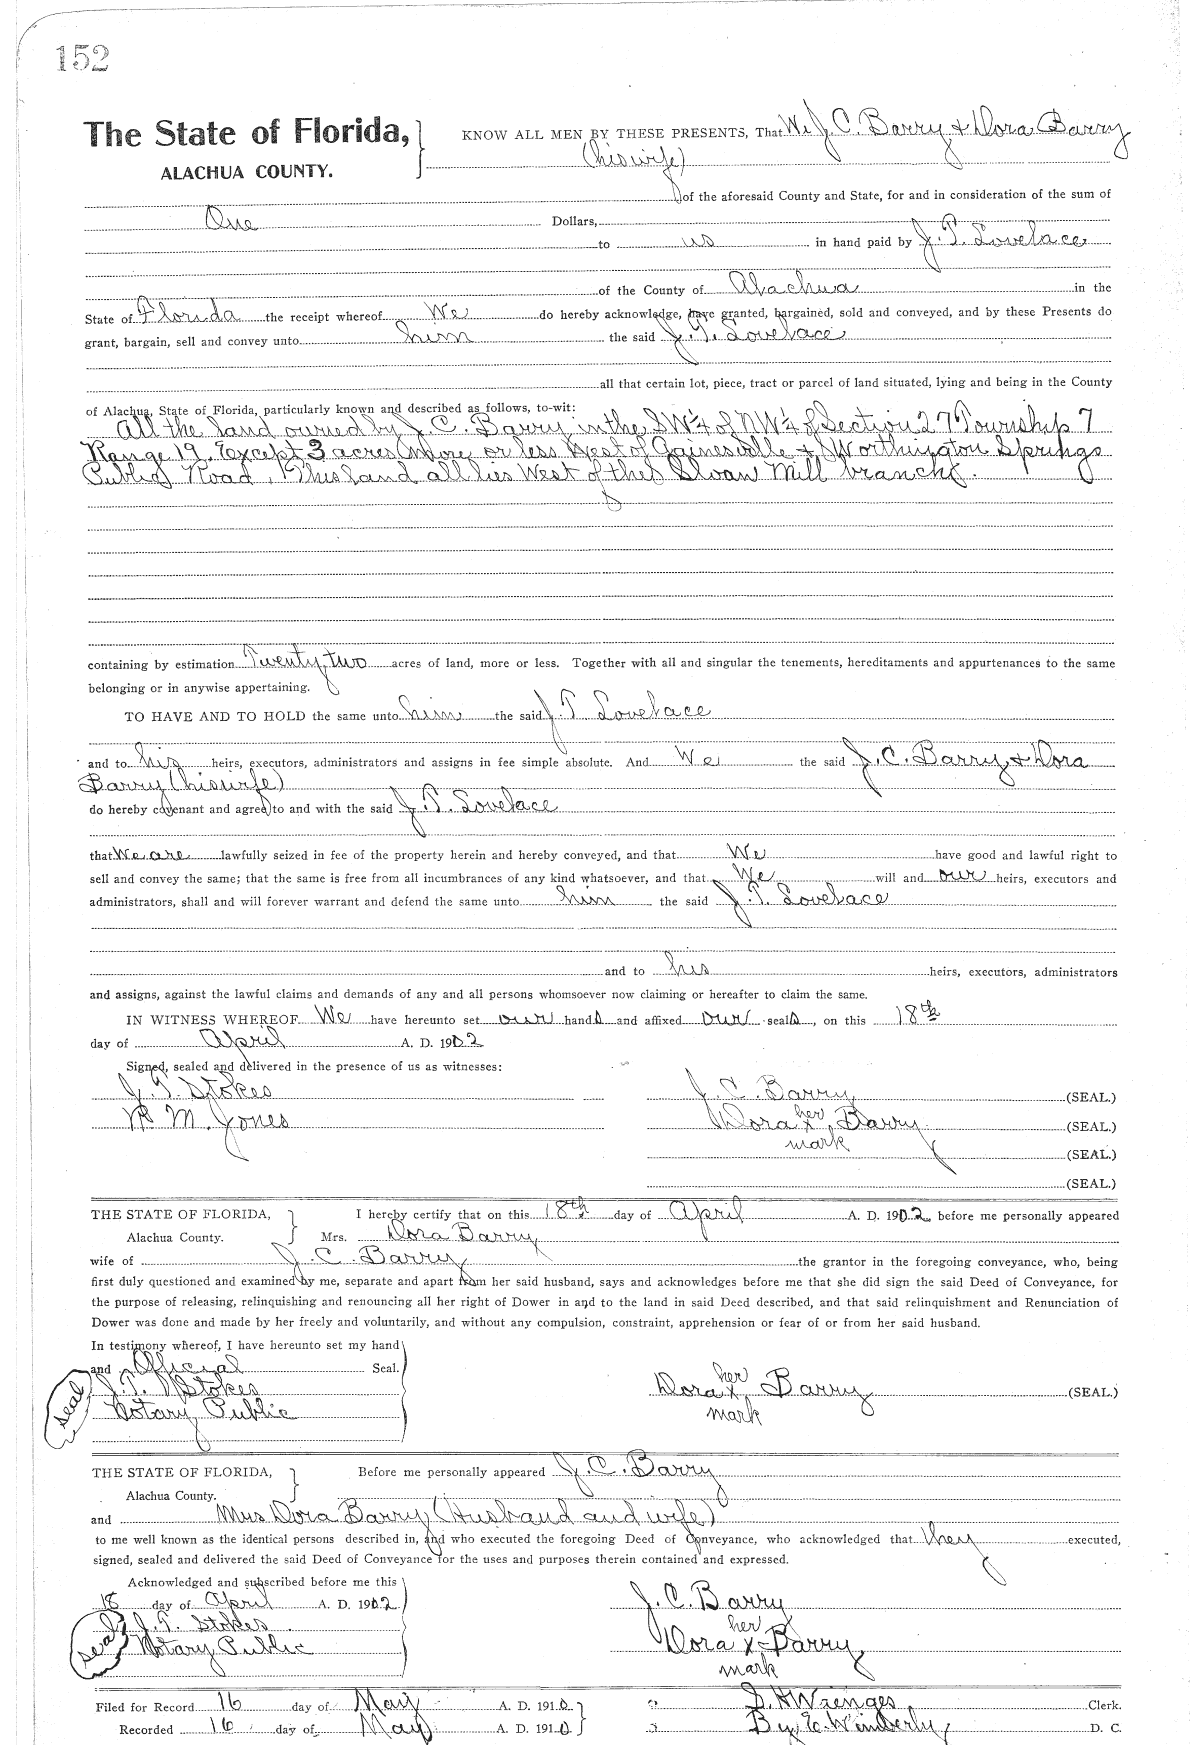 152
The State of Florida,
ALACHUA COUNTY.
KNOW ALL MEN BY THESE PRESENTS, That We J. C. Barry & Dora Barry
(his wife)
of the aforesaid County and State, for and in consideration of the sum of
One Dollars,
to us in hand paid by J. T. Lovelace
of the County of Alachua in the
State of Florida the receipt whereof We do hereby acknowledge, have granted, bargained, sold and conveyed, and by these Presents do
grant, bargain, sell and convey unto him the said J. T. Lovelace
all that certain lot, piece, tract or parcel of land situated, lying and being in the County
of Alachua, State of Florida, particularly known and described as follows, to-wit:
All the land owned by J. C. Barry in the SW¼ of NW¼ of Section 27 Township 7
Range 19, Except 3 acres more or less West of Gainesville & Worthington Springs
Public Road, This land all lies West of the Sloan Mill branch.
containing by estimation Twenty two acres of land, more or less. Together with all and singular the tenements, hereditaments and appurtenances to the same
belonging or in anywise appertaining.
TO HAVE AND TO HOLD the same unto him the said J. T Lovelace
and to his heirs, executors, administrators and assigns in fee simple absolute. And We the said J. C. Barry & Dora
Barry (his wife)
do hereby covenant and agree to and with the said J. T. Lovelace
that We are lawfully seized in fee of the property herein and hereby conveyed, and that We have good and lawful right to
sell and convey the same; that the same is free from all incumbrances of any kind whatsoever, and that We will and our heirs, executors and
administrators, shall and will forever warrant and defend the same unto him the said J. T. Lovelace
and to his heirs, executors, administrators
and assigns, against the lawful claims and demands of any and all persons whomsoever now claiming or hereafter to claim the same.
IN WITNESS WHEREOF We have hereunto set our hands and affixed our seals, on this 18th
day of April A. D. 1902
Signed, sealed and delivered in the presence of us as witnesses:
J. T. Stokes
M. Jones
J. C. Barry (SEAL.)
Dora her x mark Barry (SEAL.)
(SEAL.)
(SEAL.)
THE STATE OF FLORIDA,
Alachua County.
I hereby certify that on this 18th day of April A. D. 1902 before me personally appeared
Mrs. Dora Barry
wife of J. C. Barry the grantor in the foregoing conveyance, who, being
first duly questioned and examined by me, separate and apart from her said husband, says and acknowledges before me that she did sign the said Deed of Conveyance, for
the purpose of releasing, relinquishing and renouncing all her right of Dower in and to the land in said Deed described, and that said relinquishment and Renunciation of
Dower was done and made by her freely and voluntarily, and without any compulsion, constraint, apprehension or fear of or from her said husband.
In testimony whereof, I have hereunto set my hand
and Official Seal.
seal J. T. Stokes
Notary Public
Dora her x mark Barry (SEAL.)
THE STATE OF FLORIDA,
Alachua County.
Before me personally appeared J. C. Barry
and Mrs Dora Barry (Husband and wife)
to me well known as the identical persons described in, and who executed the foregoing Deed of Conveyance, who acknowledged that they executed,
signed, sealed and delivered the said Deed of Conveyance for the uses and purposes therein contained and expressed.
Acknowledged and subscribed before me this
18 day of April A. D. 1902
seal J. T. Stokes
Notary Public
J. C. Barry
Dora her x mark Barry
Filed for Record 16 day of May A. D. 1910
Recorded 16 day of May A. D. 1910
S. H. Wienges Clerk.
By, E. Wimberly, D. C.